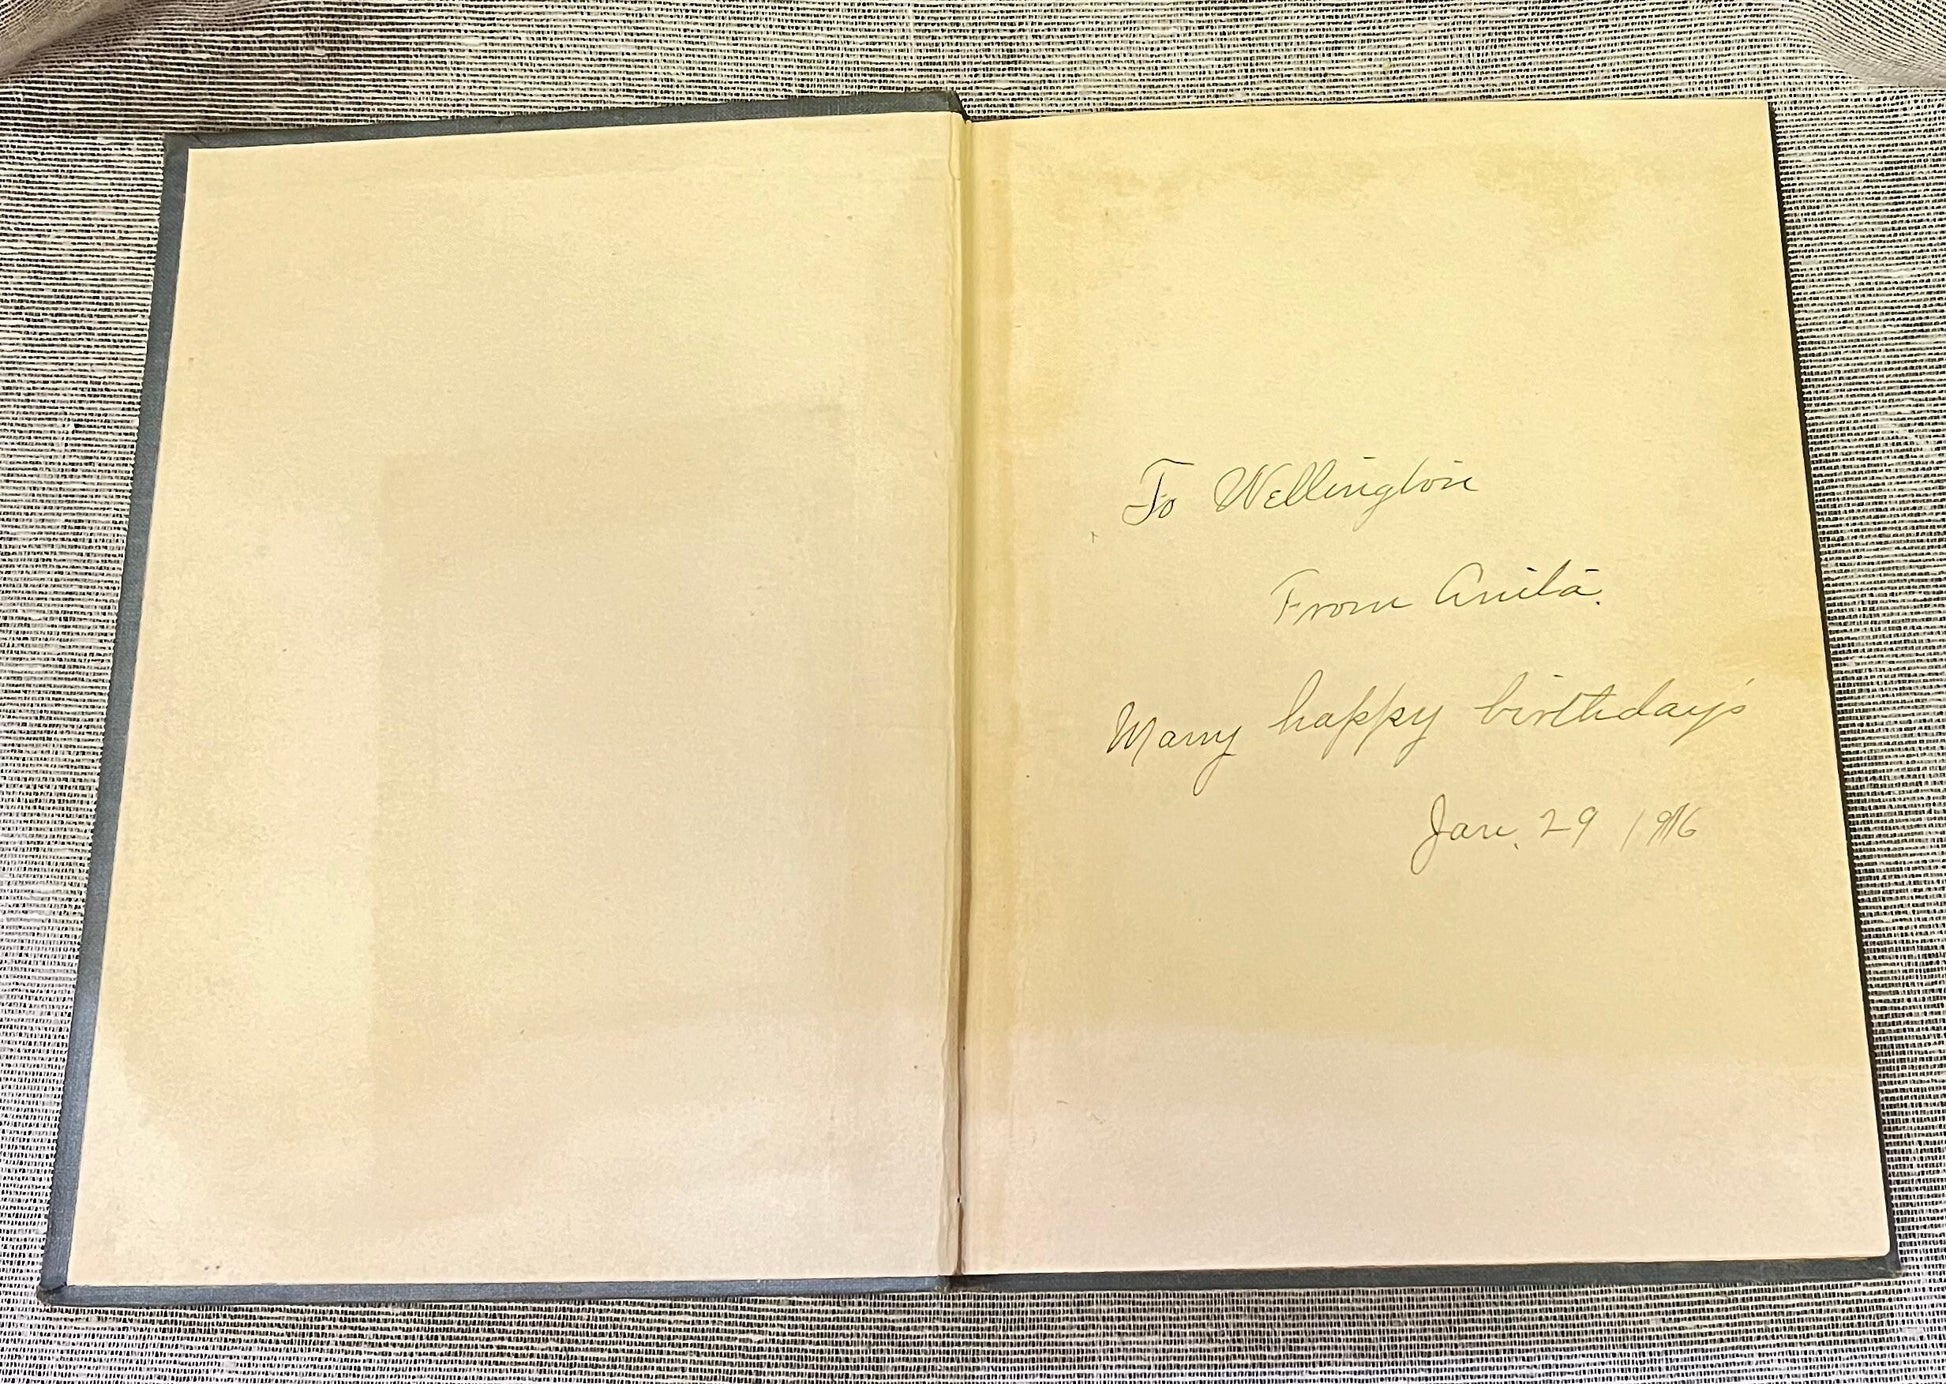 To Wellington
From Anita.
Many happy birthday's
Jan. 29 1916